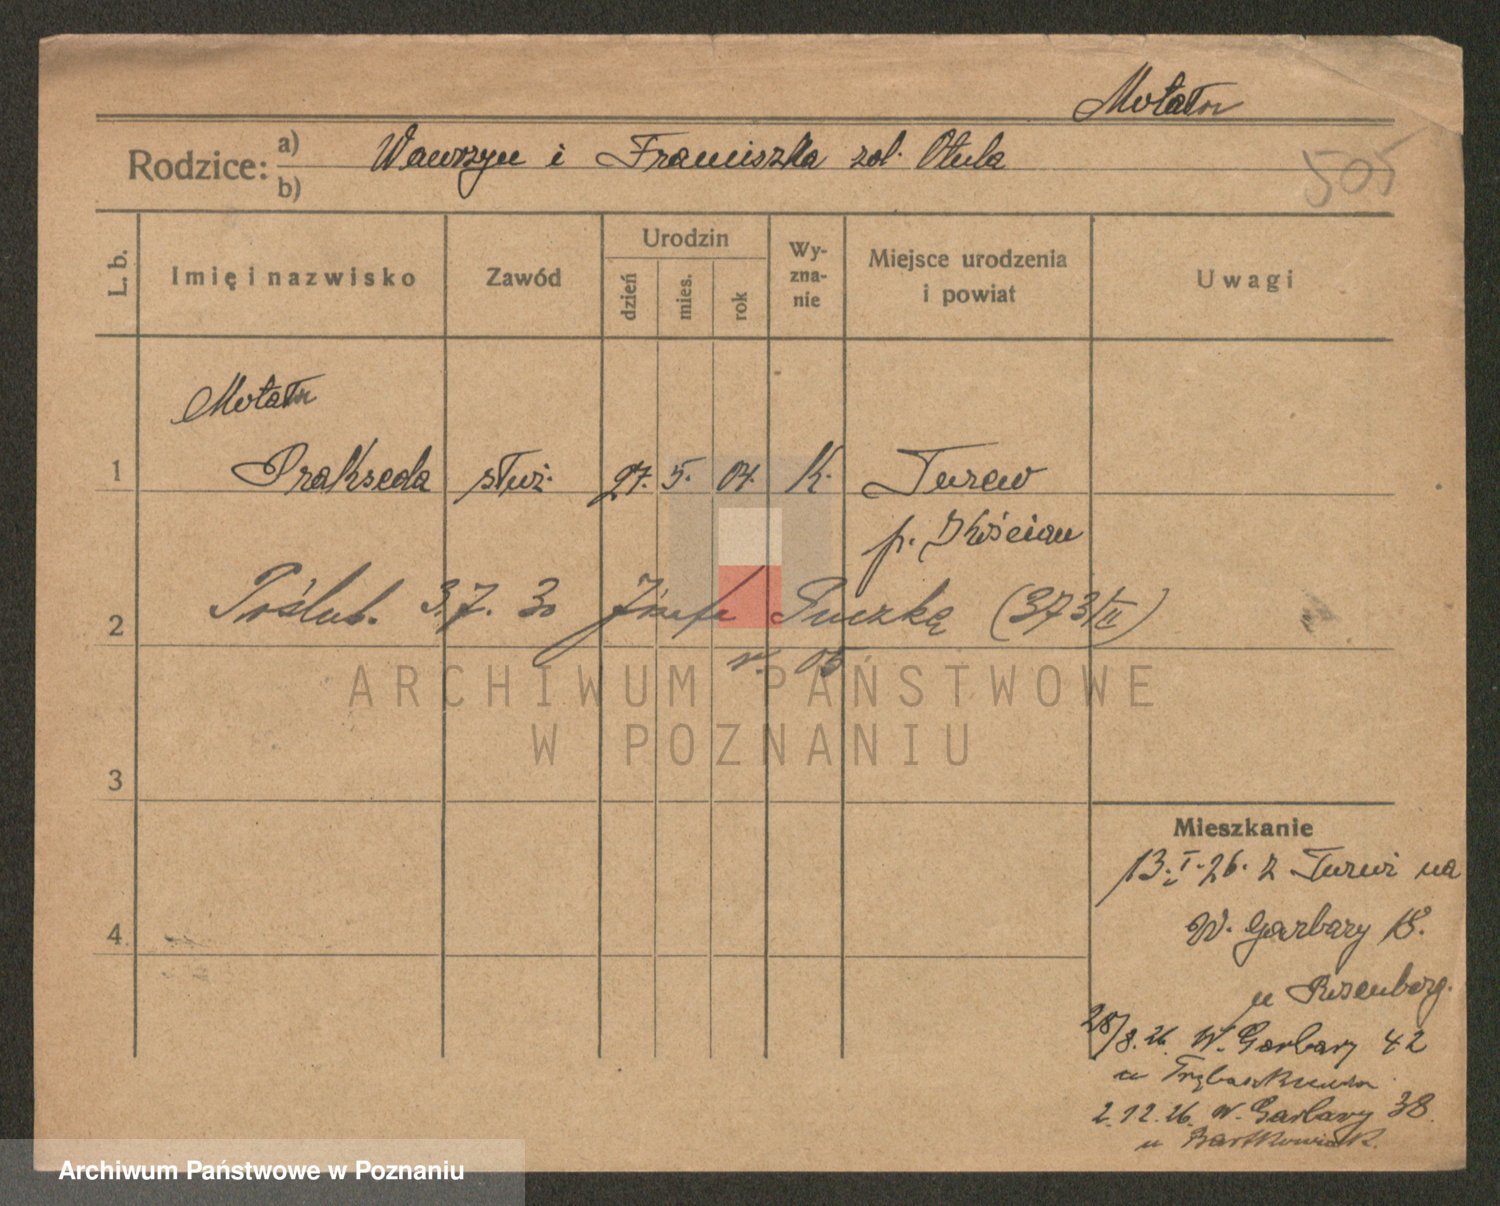 Rodzice: a) b)
Wawrzyn i Franciszka zol. Otula
505
L. b.
Imię i nazwisko
Zawód
Urodzin
dzień
mies.
rok
Wy-
zna-
nie
Miejsce urodzenia
i powiat
Uwagi
1
Prakseda służ. 27. 5. 04. K. Turew
p. Kościan
2
Poślub. 3.7. 30 Józefa Puczką (373/II)
r. 05
ARCHIWUM PAŃSTWOWE
W POZNANIU
3
4
Mieszkanie
13. I. 26. z Turwi na
W. Garbary 18.
u Rosenberg.
28/8. 26. W. Garbary 42
u
2.12.26. W. Garbary 38.
u Bartkowiak.
Archiwum Państwowe w Poznaniu